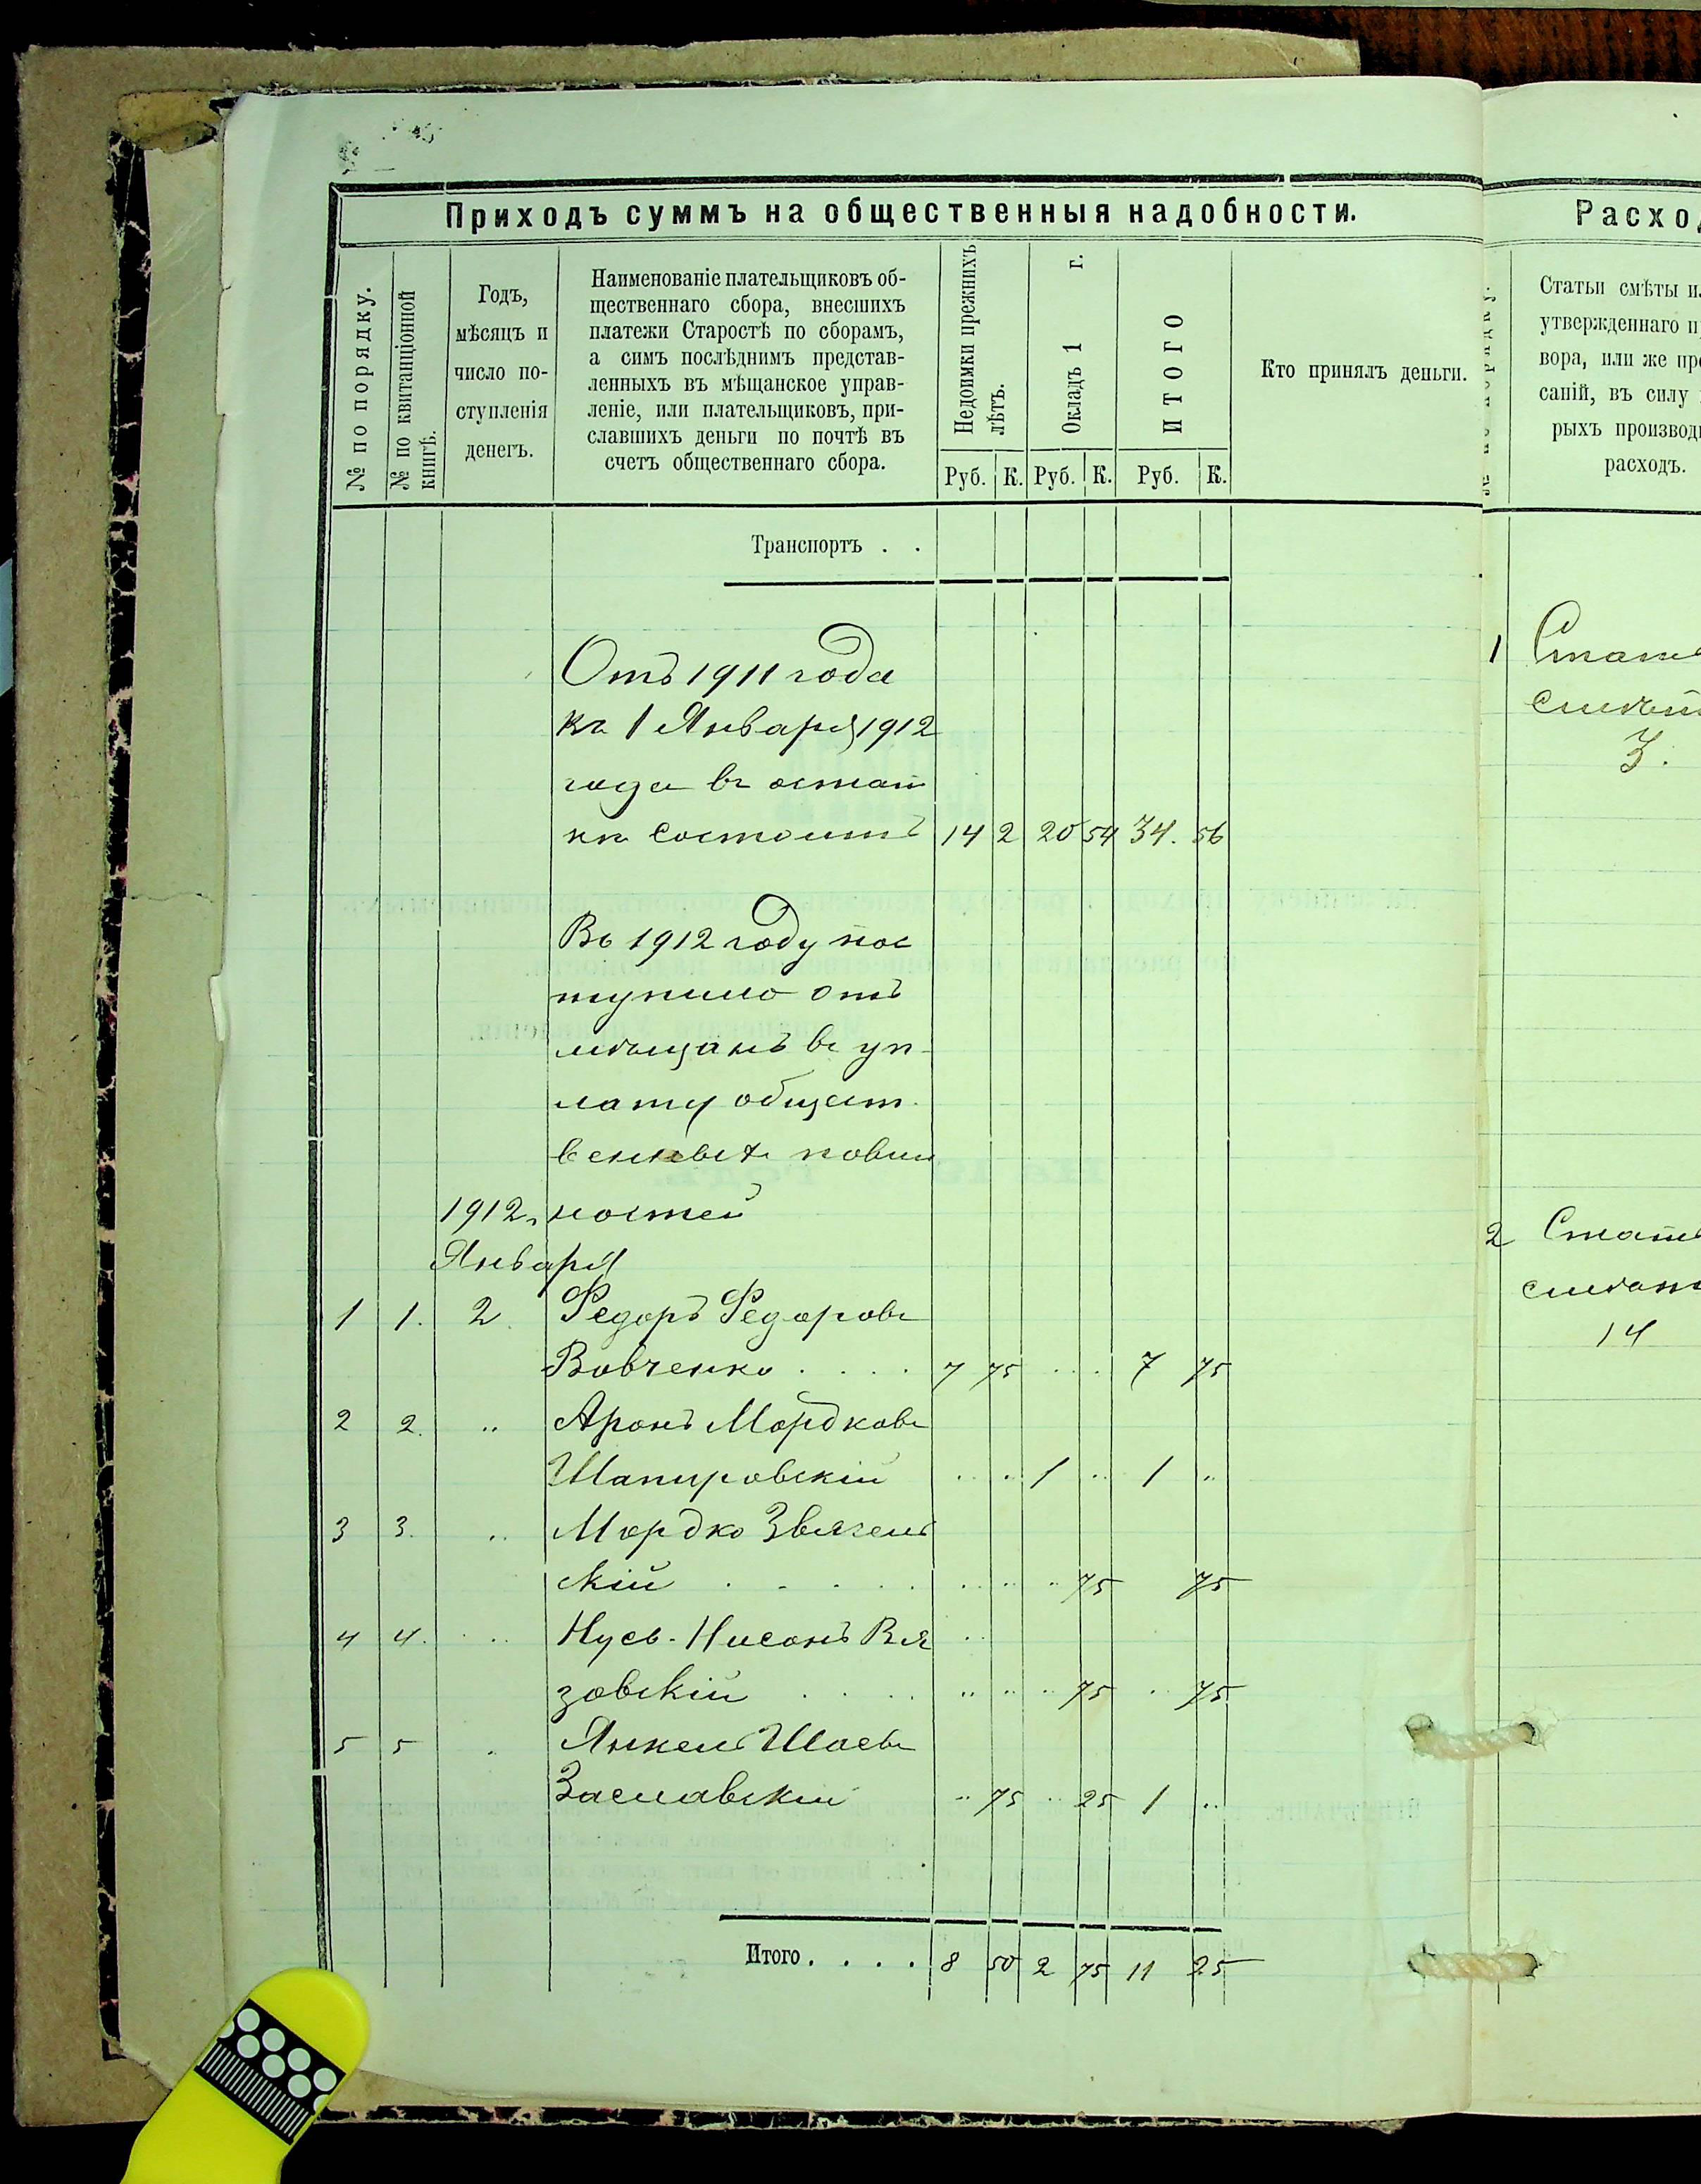 Приходъ суммъ на общественныя надобности.
№ по порядку.
№ по квитанціонной
книгѣ.
Годъ,
мѣсяцъ и
число по-
ступленія
денегъ.
Наименованіе плательщиковъ об-
щественнаго сбора, внесшихъ
платежи Старостѣ по сборамъ,
а симъ послѣднимъ представ-
ленныхъ въ мѣщанское управ-
леніе, или плательщиковъ, при-
славшихъ деньги по почтѣ въ
счетъ общественнаго сбора.
Недоимки прежнихъ
лѣтъ.
Окладъ 1 г.
ИТОГО
Кто принялъ деньги.
Руб. К. Руб. К. Руб. К.
Транспортъ . .
Отъ 1911 года
къ 1 Января 1912
года въ остат
кѣ состоитъ 14 2 20 54 34. 56
Въ 1912 году пос
тупило отъ
мѣщанъ въ уп-
лату общест
венныхъ повин
1912. ностей
Января
1 1. 2. Федоръ Федоровъ
Вовченко . . . . 7 75 . . . 7 75
2 2. " Аронъ Мордковъ
Шапировскій . . . 1 .. 1 ..
3 3. .. Мордко Звягель
скій . . . . . 75 75
4 4. .. Нусь-Нисонъ Вя
зовскій . . . . 75 .. 75
5 5 . Янкель Шаевъ
Заславскій .. 75 .. 25 1 ..
Итого . . . . 8 50 2 75 11 25
Расход
Статьи смѣты и
утвержденнаго п
вора, или же пре
саній, въ силу
рыхъ производ
расходъ.
1 Стать
смѣт
3.
2 Стать
смѣт
14